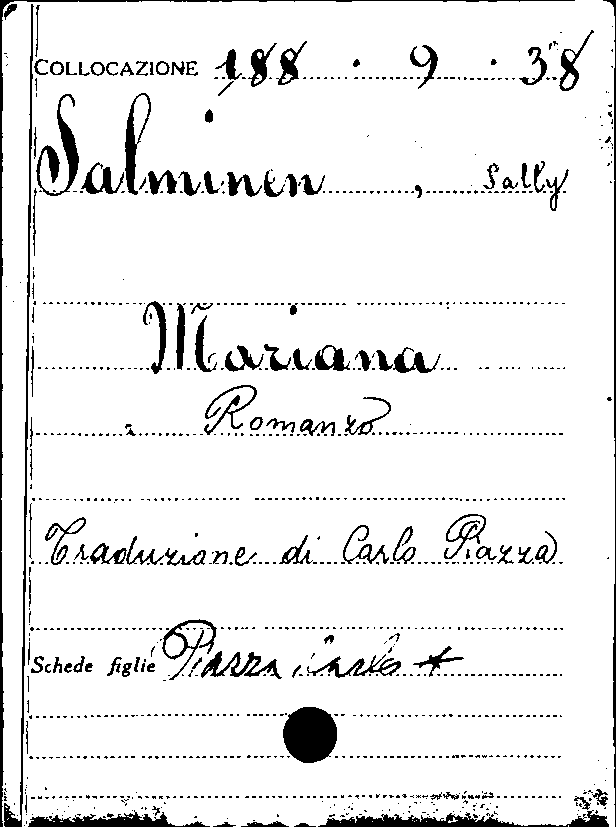 COLLOCAZIONE 188 . 9 . 38
Salminen , Sally
Mariana
Romanzo
Traduzione di Carlo Piazza
Schede figlie Piazza Carlo +